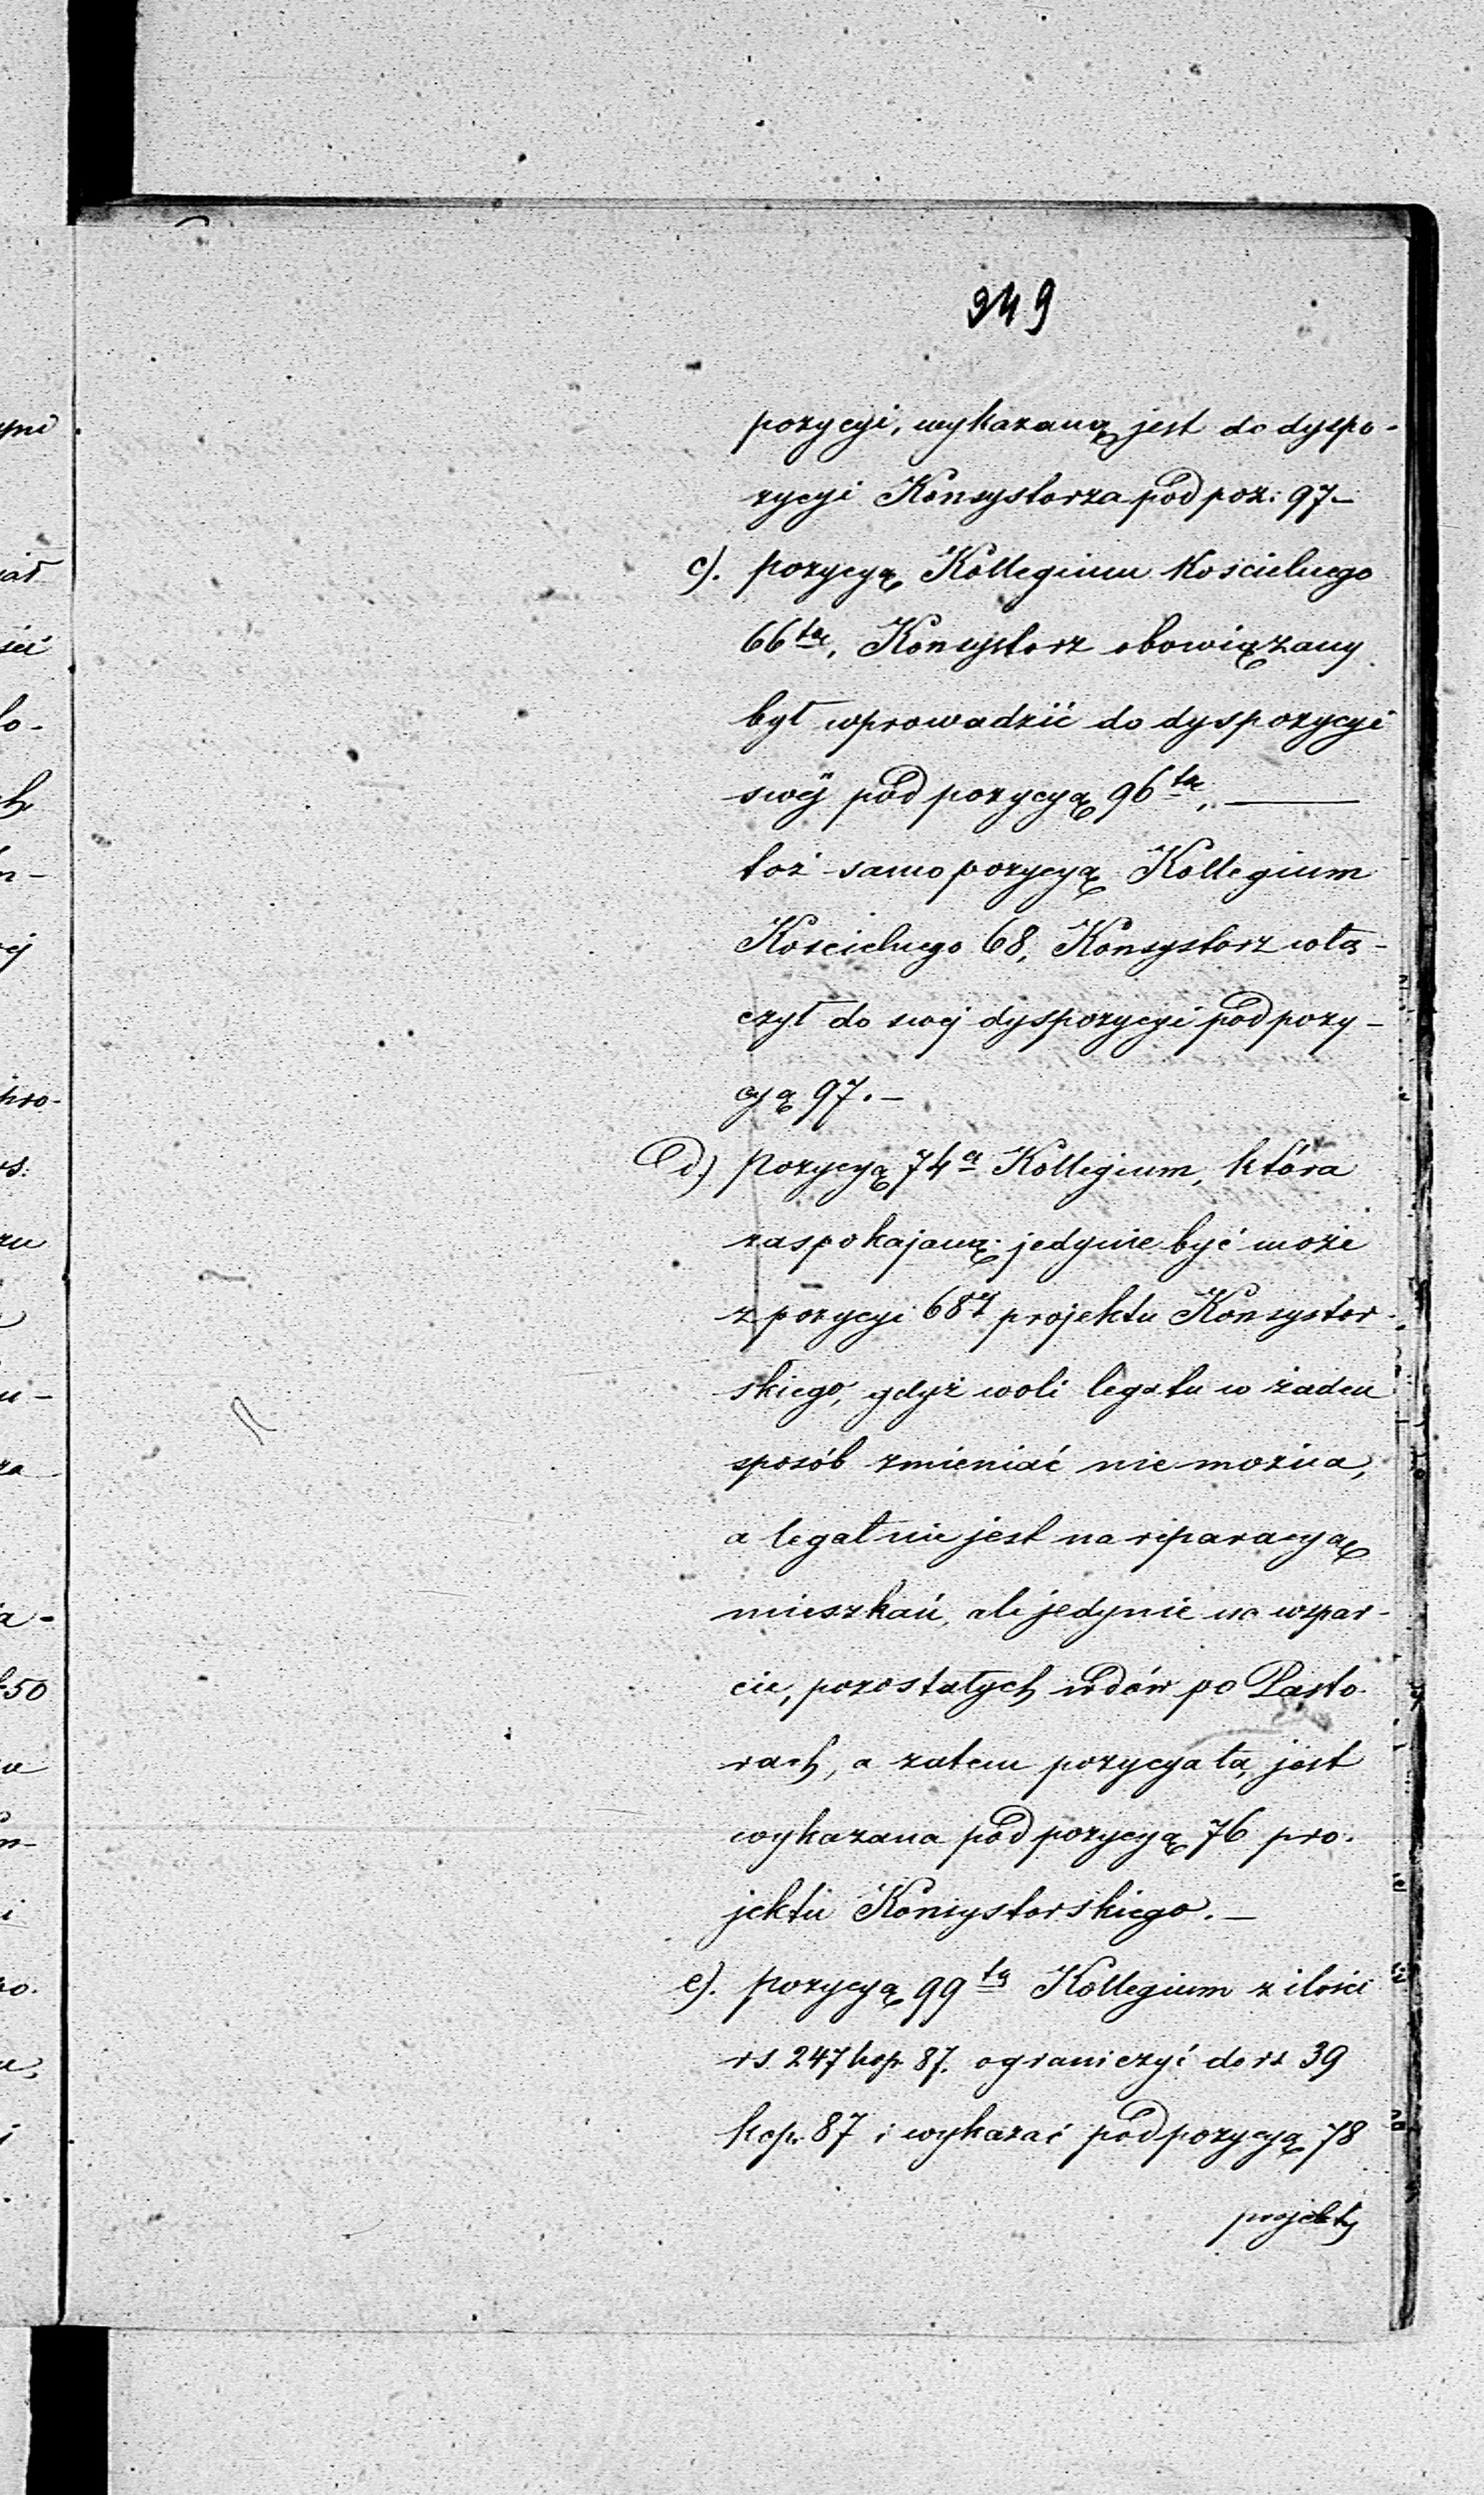 349
pozycyi, wykazaną jest do dyspo-
zycyi Konsystorza pod poz: 97.—
c). pozycyą Kollegium Kościelnego
66tą, Konsystorz obowiązany
był wprowadzić do dyspozycyi
swéj pod pozycyą 96tą, —
toż samo pozycyą Kollegium
Kościelnego 68, Konsystorz włą-
czył do swej dyspozycyi pod pozy-
cyą 97.—
d.) Pozycyą 74a Kollegium, która
zaspokajaną jedynie być może
z pozycyi 687 projektu Konsystor-
skiego, gdyż woli legatu w żaden
sposób zmieniać nie można,
a legat nie jest na reparacyą
mieszkań, ale jedynie na wspar-
cie, pozostałych wdów po Pasto-
rach, a zatem pozycya ta, jest
wykazana pod pozycyą 76 pro-
jektu Konsystorskiego.—
e). pozycyą 99tą Kollegium z ilości
rs. 247 kop. 87. ograniczyć do rs 39
kop. 87 i wykazać pod pozycyą 78
projektu